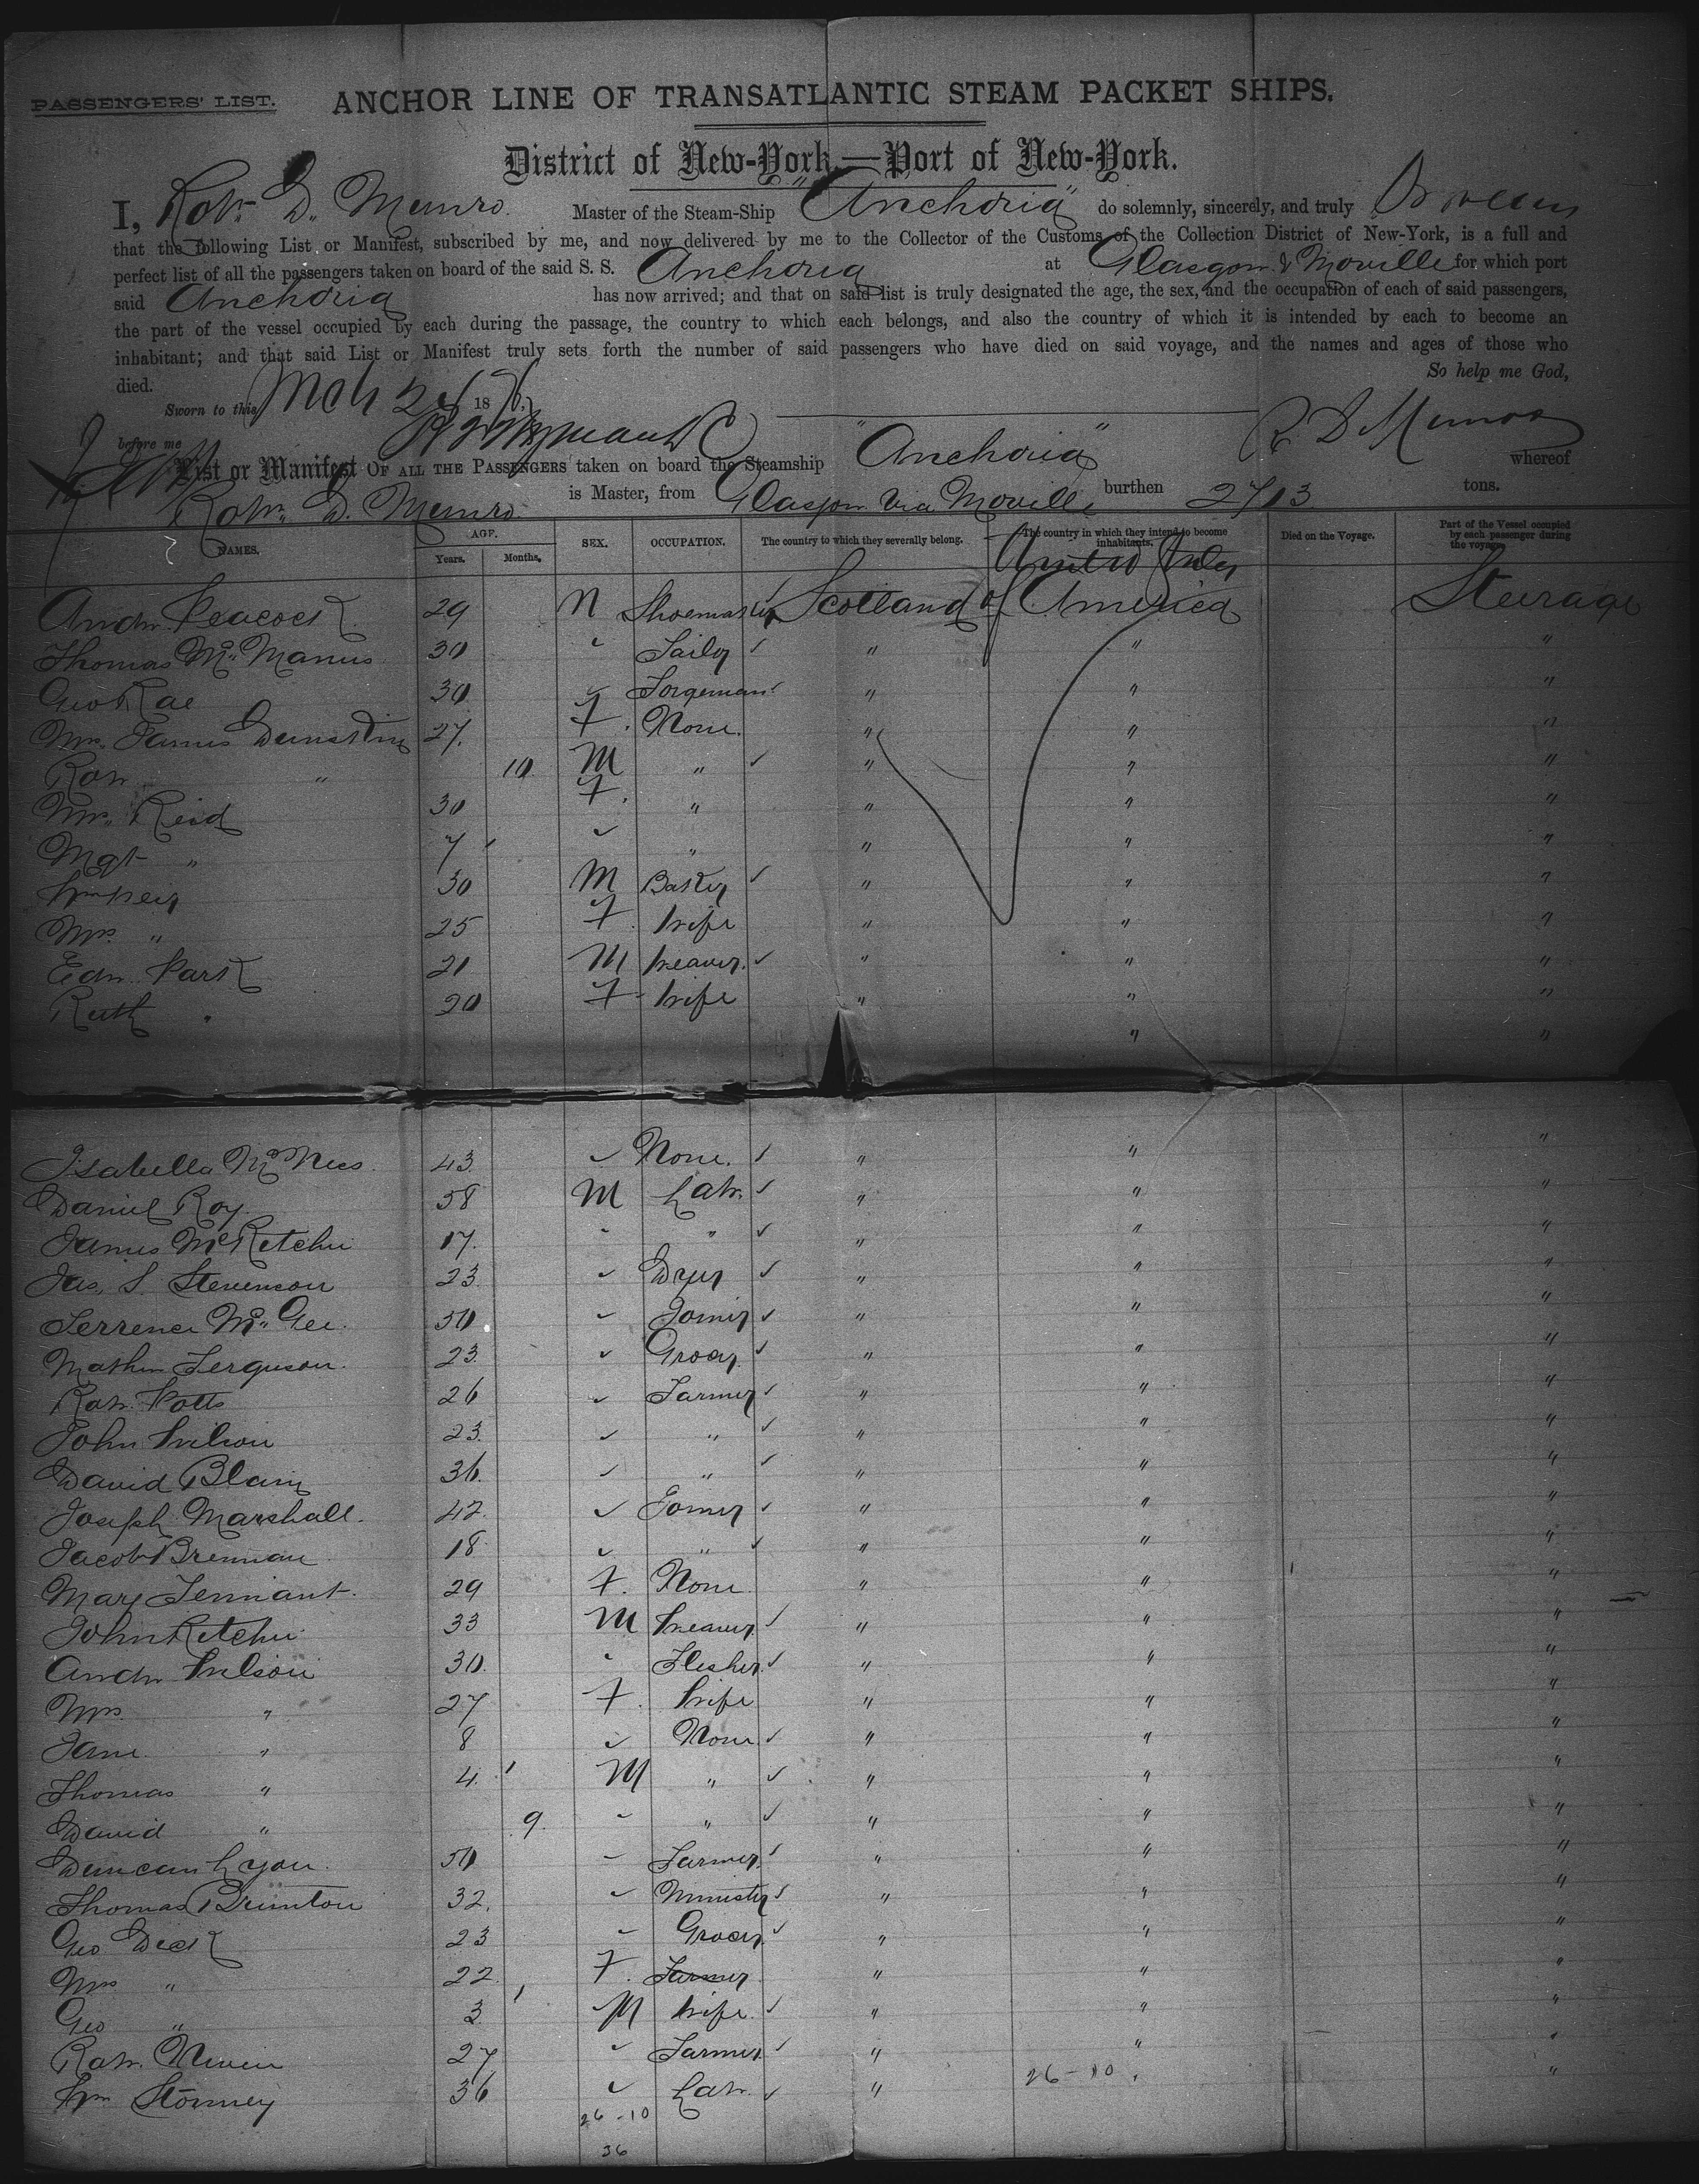 PASSENGERS' LIST.
ANCHOR LINE OF TRANSATLANTIC STEAM PACKET SHIPS.
District of New-York.—Port of New-York.
I, Robt. D. Munro. Master of the Steam-Ship "Anchoria" do solemnly, sincerely, and truly Swear
that the following List or Manifest, subscribed by me, and now delivered by me to the Collector of the Customs of the Collection District of New-York, is a full and
perfect list of all the passengers taken on board of the said S. S. Anchoria at Glasgow & Moville for which port
said Anchoria has now arrived; and that on said list is truly designated the age, the sex, and the occupation of each of said passengers,
the part of the vessel occupied by each during the passage, the country to which each belongs, and also the country of which it is intended by each to become an
inhabitant; and that said List or Manifest truly sets forth the number of said passengers who have died on said voyage, and the names and ages of those who
died. So help me God,
Sworn to this Mch 18
before me R D Munro
List or Manifest OF ALL THE PASSENGERS taken on board the Steamship "Anchoria" whereof
Robt. D. Munro is Master, from Glasgow via Moville burthen 2713 tons.
NAMES. AGE. Years. Months. SEX. OCCUPATION. The country to which they severally belong. The country in which they intend to become inhabitants. Died on the Voyage. Part of the Vessel occupied by each passenger during the voyage.
United States
Andw. Peacock 29 M Shoemaker Scotland of America Steerage
Thomas Mc.Manus 30 " Tailor " " "
Geo Rae 30 " Forgeman " " "
Mrs. James 27. F. None. " " "
Robt. " 10 M " " " "
Mrs. Reid 30 F. " " " "
Mgt " 7 " " " " "
Wm Neir 30 M Baker " " "
Mrs. " 25 F. Wife " " "
Edw. Park 21 M Weaver. " " "
Ruth " 20 F Wife " " "
" "
Isabella McNees. 43. " None. " " "
Daniel Roy. 58 M Labr. " " "
James McKetchie 17. " " " " "
Jas. S. Stevenson 23. " Dyer " " "
Terrence Mc.Gee. 50. " Joiner " " "
Mathew Ferguson. 23. " Grocer. " " "
Robt. Potts 26 " Farmer " " "
John Wilson 23. " " " " "
David Blain 36. " " " " "
Joseph Marshall. 42. " Joiner " " "
Jacob Brennan 18 " " " " "
Mary Tennant. 29 F. None. " " "
John Ketchie 33 M Weaver. " " "
Andw Wilson 30. " Flesher. " " "
Mrs. " 27 F. Wife " " "
Jane. " 8 " None. " " "
Thomas " 4. M " " " "
David " 9. " " " " "
Duncan Lyon. 50 " Farmer. " " "
Thomas Brunton 32. " Minister " " "
Geo Dick 23 " Grocer. " " "
Mrs " 22. F. Farmer. " " "
Geo " 3 M Wife. " " "
Robt. Niven 27 " Farmer. " " "
Wm Stormey 36 " Labr. " " "
26-10
26-10
36